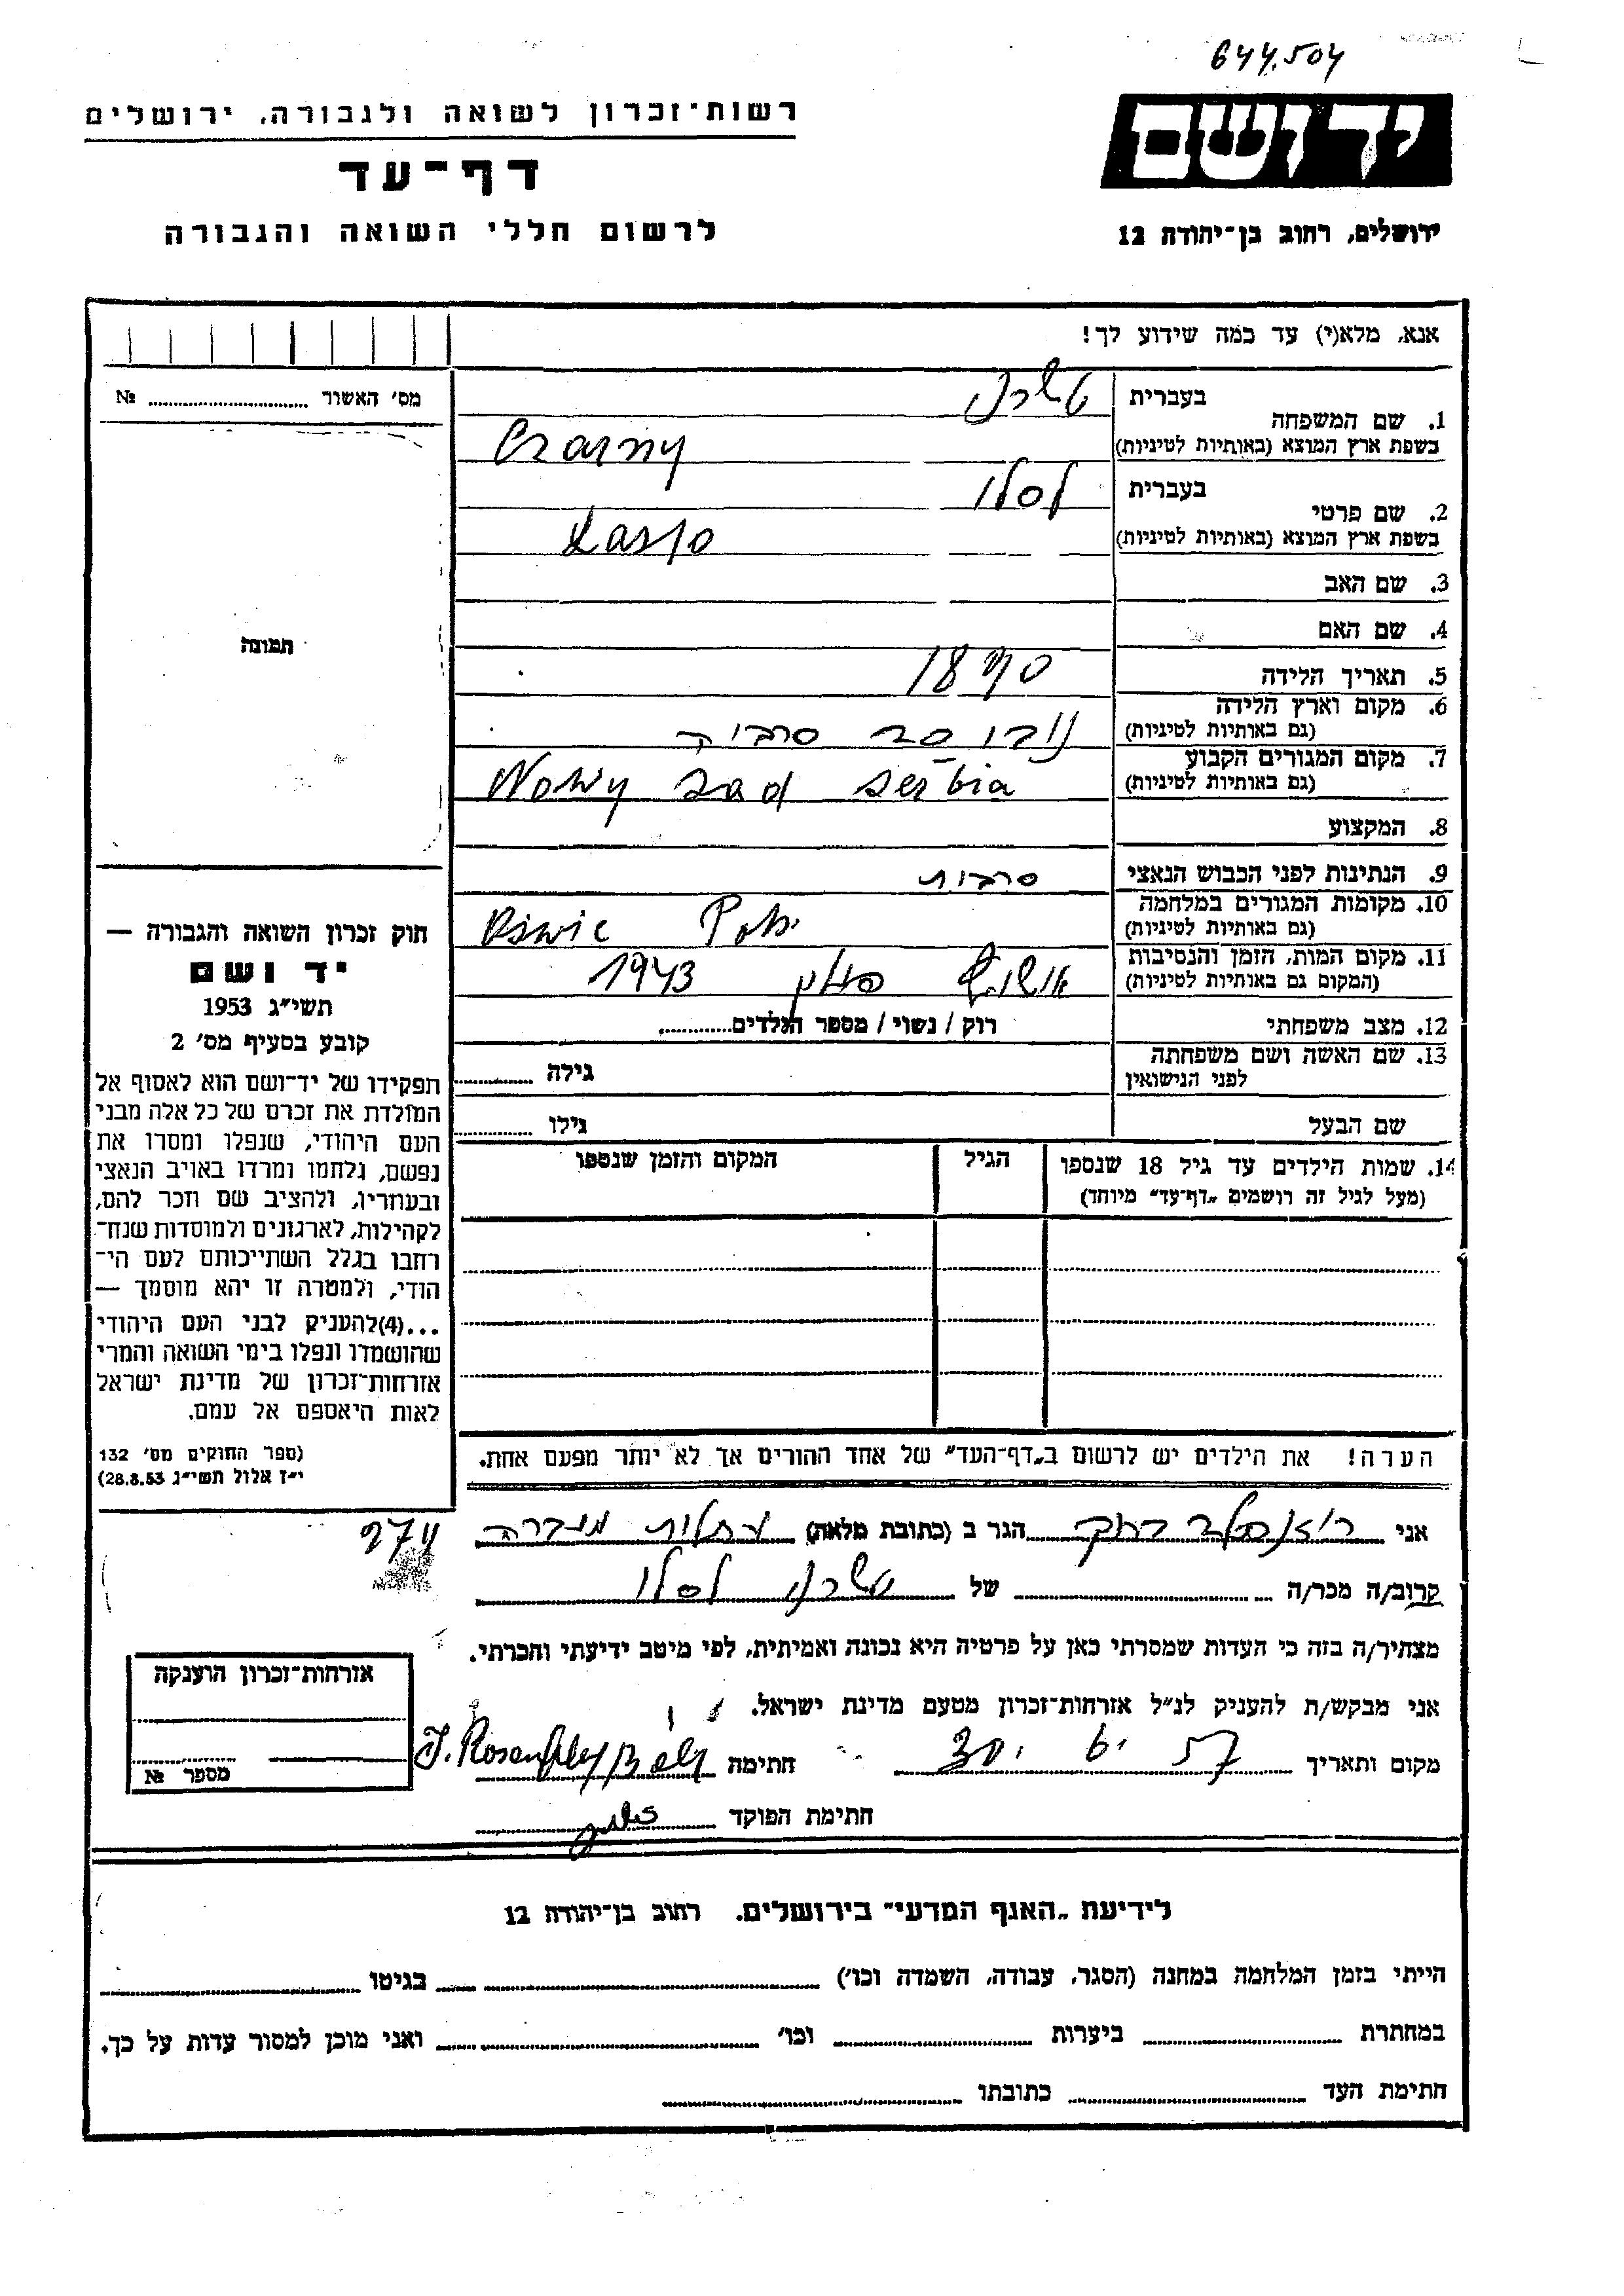 644.504
ידושם
ירושלים, רחוב בן־יהודה 12
רשות־זכרון לשואה ולגבורה, ירושלים
דף־עד
לרשום חללי השואה והגבורה
אנא, מלא(י) עד כמה שידוע לך!
מס׳ האשור № 
תמונה
1. שם המשפחה בעברית טשרני
בשפת ארץ המוצא (באותיות לטיניות) Czarny
2. שם פרטי בעברית לסלו
בשפת ארץ המוצא (באותיות לטיניות) Laslo
3. שם האב
4. שם האם
5. תאריך הלידה 1890
6. מקום וארץ הלידה (גם באותיות לטיניות) נובו סד סרביה
7. מקום המגורים הקבוע (גם באותיות לטיניות) Nowy Sad Serbia
8. המקצוע
9. הנתינות לפני הכבוש הנאצי סרבית
10. מקומות המגורים במלחמה (גם באותיות לטיניות)
11. מקום המות, הזמן והנסיבות (המקום גם באותיות לטיניות) פולין 1943
12. מצב משפחתי רוק / נשוי / מספר הילדים
13. שם האשה ושם משפחתה לפני הנישואין גילה
שם הבעל גילו
14. שמות הילדים עד גיל 18 שנספו (מעל לגיל זה רושמים „דף־עד״ מיוחד) הגיל המקום והזמן שנספו
חוק זכרון השואה והגבורה —
יד ושם
תשי״ג 1953
קובע בסעיף מס׳ 2
תפקידו של יד־ושם הוא לאסוף אל
המולדת את זכרם של כל אלה מבני
העם היהודי, שנפלו ומסרו את
נפשם, נלחמו ומרדו באויב הנאצי
ובעוזריו, ולהציב שם וזכר להם,
לקהילות, לארגונים ולמוסדות שנח־
רחבו בגלל השתייכותם לעם הי־
הודי, ולמטרה זו יהא מוסמך —
...(4)להעניק לבני העם היהודי
שהושמדו ונפלו בימי השואה והמרי
אזרחות־זכרון של מדינת ישראל
לאות היאספם אל עמם.
(ספר החוקים מס׳ 132
י״ז אלול תשי״ג 28.8.53)
הערה! את הילדים יש לרשום ב„דף־העד״ של אחד ההורים אך לא יותר מפעם אחת.
274
אני הגר ב (כתובת מלאה)
קרוב/ה מכר/ה של טשרני לסלו
מצהיר/ה בזה כי העדות שמסרתי כאן על פרטיה היא נכונה ואמיתית, לפי מיטב ידיעתי והכרתי.
אני מבקש/ת להעניק לנ״ל אזרחות־זכרון מטעם מדינת ישראל.
מקום ותאריך 30 6 57 חתימה
חתימת הפוקד
אזרחות־זכרון הוענקה
מספר №
לידיעת „האגף המדעי״ בירושלים. רחוב בן־יהודה 12
הייתי בזמן המלחמה במחנה (הסגר, עבודה, השמדה וכו׳) בגיטו
במחתרת ביערות וכו׳ ואני מוכן למסור עדות על כך.
חתימת העד כתובתו